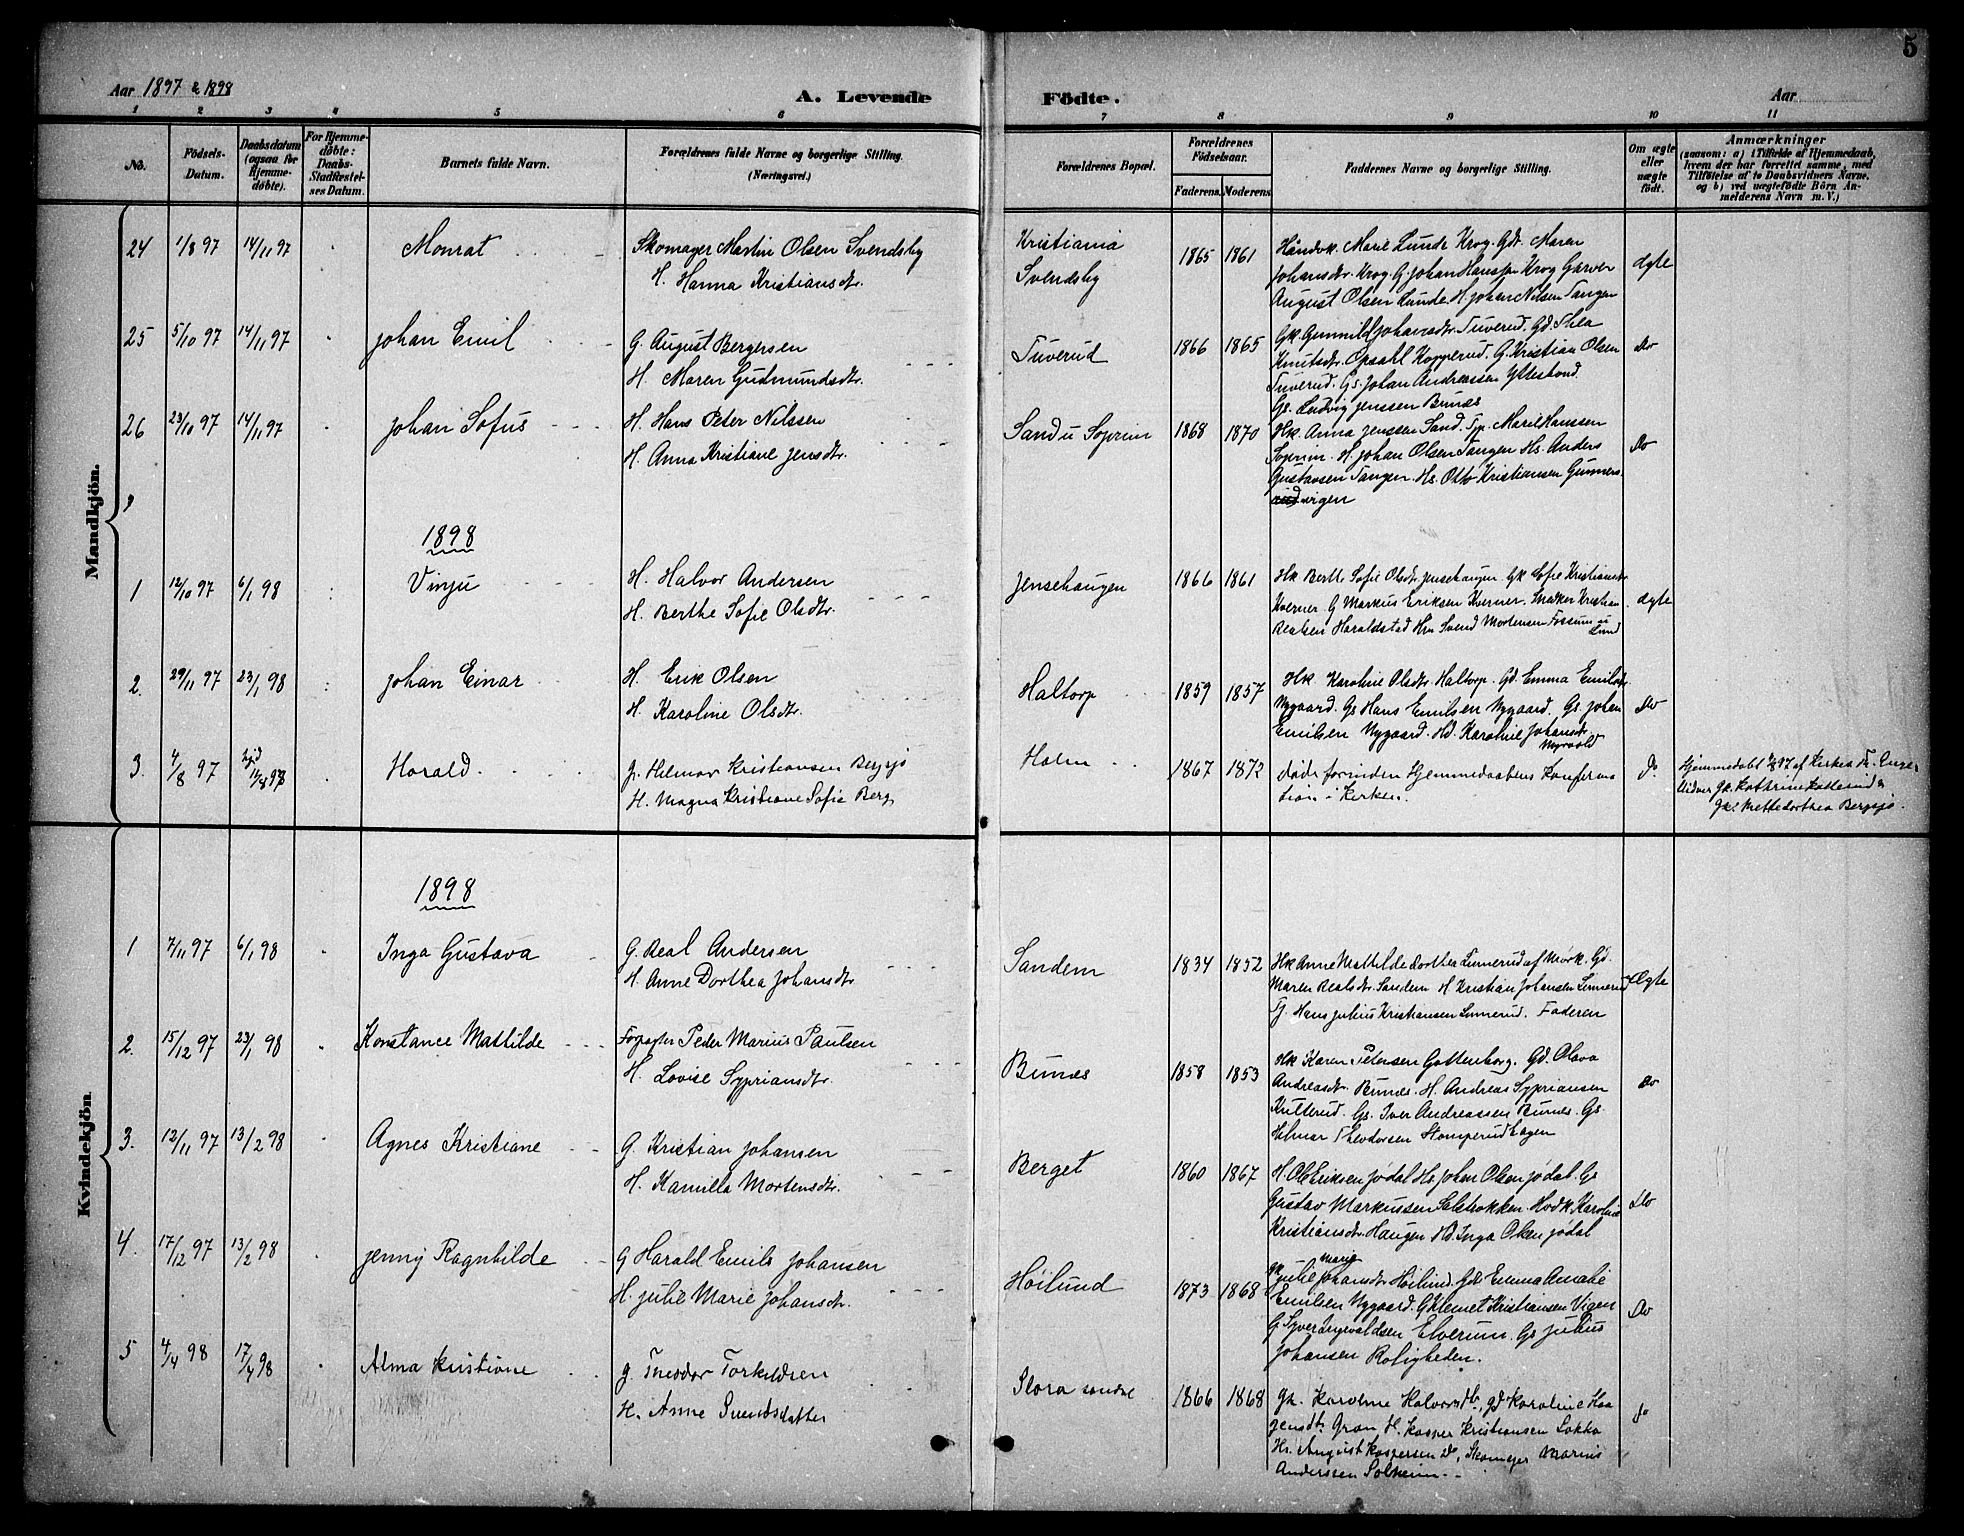 5
Aar 1897 & 1898
A. Levende
Födte.
Aar
1 2 3 4 5 6 7 8 9 10 11
No.
Födsels-
Datum.
Daabsdatum
(ogsaa for
Hjemme-
döbte).
For Hjemme-
döbte:
Daabs-
Stadfæstel-
ses Datum.
Barnets fulde Navn.
Forældrenes fulde Navne og borgerlige Stilling.
(Næringsvei.)
Forældrenes Bopæl.
Forældrenes
Födselsaar.
Faderens.
Moderens.
Faddernes Navne og borgerlige Stilling.
Om ægte
eller
uægte
födt.
Anmærkninger
(saasom: a) i Tilfælde af Hjemmedaab,
hvem der har forrettet samme, med
Tilföielse af to Daabsvidners Navne.
og b) ved uægtefödte Börn An-
melderens Navn m. V.)
Mandkjön.
24 1/8 97 14/11 97 Monrat
Skomager Martin Olsen Svendsby
H. Hanna Kristiansdtr.
Kristiania
Svendsby
1865 1861
Håndvk. Marie Lunde Krog. Gdr. Maren
Johansdtr. Krog. G. Johan Hanssen Krog Garver
August Olsen Lunde. H. Johan Nilsen Tangen
ægte
25 5/10 97 14/11 97 Johan Emil
G. August Bergersen
H. Maren Gudmundsdtr.
Tuverud
1866 1865
Gk. Gunnild Johansdtr. Tuverud. Gd. Thea
Knutsdtr. Opsahl Kopperud. G. Kristian Olsen
Tuverud. Gs. Johan Andreassen Yttestond.
Gs. Ludvig Jenssen Bunæs
do
26 23/10 97 14/11 97 Johan Sofus
H. Hans Peter Nilssen
H. Anna Kristiane Jensdtr.
Sand u Soprim
1868 1870
Hk. Anna Jenssen Sand. Tjp. Marie Hanssen
Soprim. H. Johan Olsen Tangen Hs. Anders
Gustavsen Tangen. Hs. Otto Kristiansen Gunners
vigen
do
1898
1 12/10 97 6/1 98 Vinju
H. Halvor Andersen
H. Berthe Sofie Olsdtr.
Jensehaugen
1866 1861
Hk Berth. Sofie Olsdtr. Jensehaugen. Gk Sofie Kristiansdtr
Kverner. G Markus Eriksen Kverner. Snedker Kristian
Realsen Haraldstad Hm Svend Mortensen Fossum u
Lund
ægte
2. 29/11 97 23/1 98 Johan Einar
H. Erik Olsen
H. Karoline Olsdtr.
Haltorp
1859 1857
Hk Karoline Olsdtr. Haltorp. Gd. Emma Emilsdtr
Nygaard. Gs Hans Emilsen Nygaard. Gs. Johan
Emilsen Nygaard. Hd. Karoline Johansdtr.
Myrvold
do
3. 4/8 97 Harald.
G. Helmer Kristiansen Bergsjø
H. Magna Kristiane Sofie Berg
Holm
1867 1872
døde forinden Hjemmedaabens Konferma
tion i Kirken.
do
Hjemmedøbt 97 af Kirkes
Vidner Gk. Kathrine
Gk. Mette Dorthea Bergsjø.
Kvindekjön.
1898
1 7/11 97 6/1 98 Inga Gustava
G. Real Andersen
H. Anne Dorthea Johansdtr.
Sandem
1834 1852
Hk Anne Mathilde Dorthea Linnerud af Mørk. Gd.
Maren Realsdtr. Sandem H Kristian Johansen Linnerud
Tj. Hans Julius Kristiansen Linnerud. Faderen
Ægte
2. 15/12 97 23/1 98 Konstance Mathilde
Forpagter Peder Marius Paulsen
H. Lovise Sypriansdtr.
Bunæs
1858 1853
Hk Karen Petersen Gottenborg. Gd. Olava
Andreasdtr. Bunæs. H. Andreas Sypriansen
Kutterud. Gs. Iver Andreassen Bunæs. Gs.
Helmar Theodorsen Stomperudhagen
do
3. 12/11 97 13/2 98 Agnes Kristiane
G. Kristian Johansen
H. Kamilla Mortensdtr.
Berget
1860 1867
H. Ole Eriksen Jødal Hs. Johan Olsen Jødal. Gs
Gustav Markussen Selstrokken. Hovdk Karoline
Kristiansdtr. Haugen Hd. Inga Olsen Jødal
do
4. 17/12 97 13/2 98 Jenny Ragnhilde
G Harald Emils Johansen
H. Julie Marie Johansdtr.
Høilund
1873 1868
Gk Julie Marie Johansdtr Høilund. Gd. Emma Amalie
Emilsen Nygaard. G Klemet Kristiansen Vigen
G Syver Ingevaldsen Elverum. Gs Julius
Johansen Roligheden.
do
5 4/4 98 17/4 98 Alma Kristiane
G. Theodor Torkildsen
H. Anne Svendsdatter
Stora Sandem
1866 1868
Gk. Karoline Halvorsdtr, Gd Karoline Haa
gensdtr Gran H. Kasper Kristiansen Lokka
Hs. August Kaspersen do, Skomager Marius
Anderssen Solheim.
do